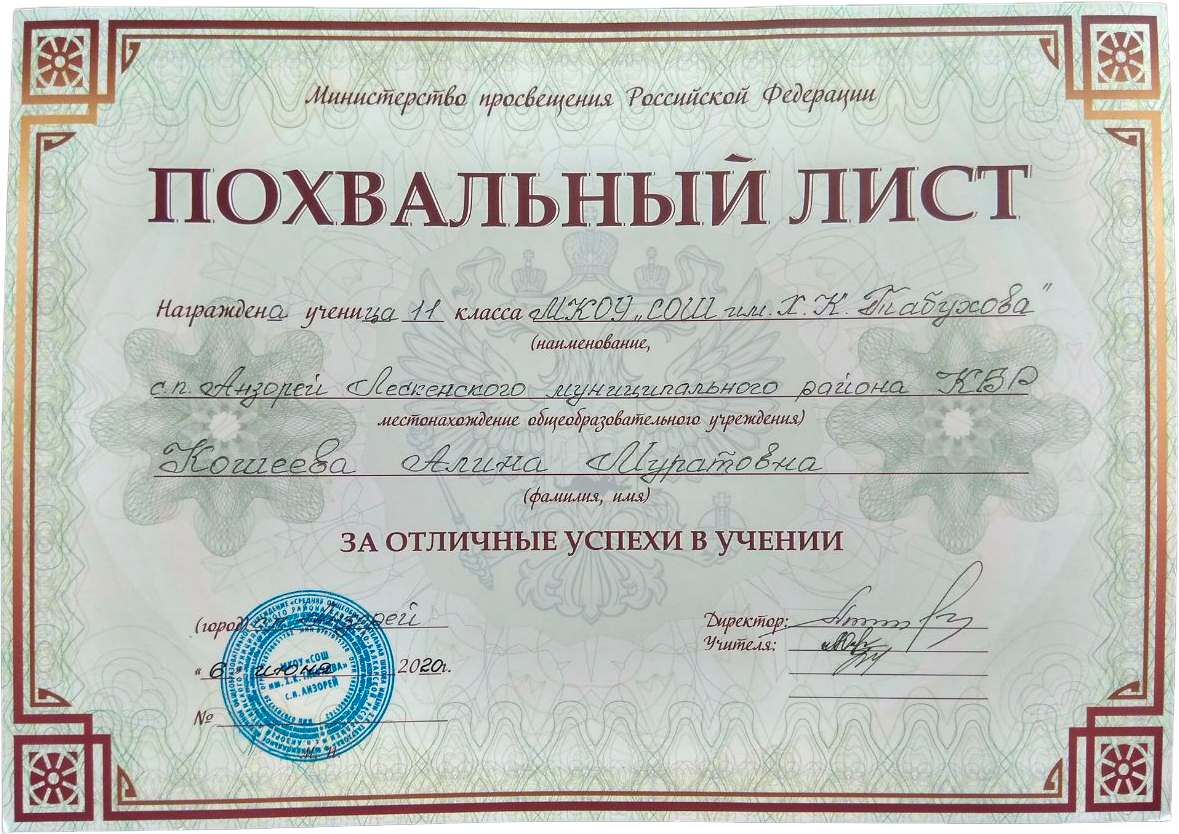 Министерство просвещения Российской Федерации
ПОХВАЛЬНЫЙ ЛИСТ
Награждена ученица 11 класса МКОУ „СОШ им. Х. К. Табухова"
(наименование,
с.п. Анзорей Лескенского муниципального района КБР
местонахождение общеобразовательного учреждения)
Кошеева Алина Муратовна
(фамилия, имя)
ЗА ОТЛИЧНЫЕ УСПЕХИ В УЧЕНИИ
(город с.п. Анзорей
Директор:
Учителя:
"6" июня 2020г.
№
М. П.
МКОУ «СОШ
ИМ. Х.К. ТАБУХОВА»
С.П. АНЗОРЕЙ